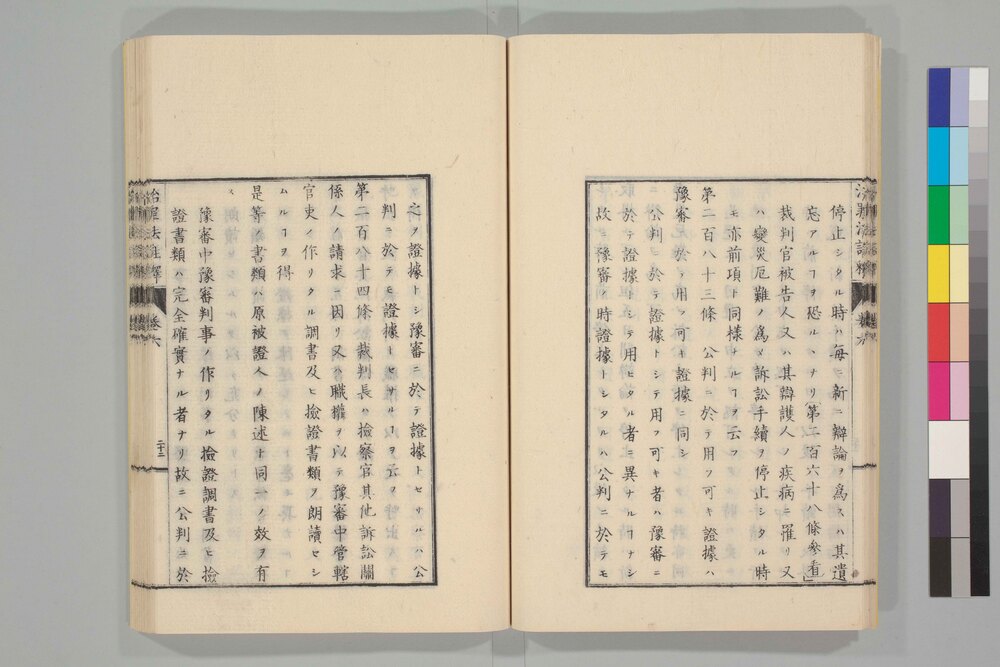 停止シタル時ハ毎ニ新ニ辯論ヲ爲スハ其遺
忘アルヿヲ恐ルヽナリ「第二百六十八條參看」
裁判官被告人又ハ其辯護人ノ疾病ニ罹リ又
ハ變災厄難ノ爲メ訴訟手續ヲ停止シタル時
モ亦前項ト同樣ナルヿヲ云フ
第二百八十三條　公判ニ於テ用フ可キ證據ハ
豫審ニ於テ用フ可キ證據ニ同シ
公判ニ於テ證據トシテ用フ可キ者ハ豫審ニ
於テ證據トシテ用ヒタル者ニ異ナルヿナシ
故ニ豫審ノ時證據トシタルハ公判ニ於テモ
之ヲ證據トシ豫審ニ於テ證據トセサルハ公
判ニ於テモ證據トセサルヿヲ云フ
第二百八十四條　裁判長ハ檢察官其他訴訟關
係人ノ請求ニ因リ又ハ職權ヲ以テ豫審中管轄
官吏ノ作リタル調書及ヒ檢證書類ヲ朗讀セシ
ムルヿヲ得
是等ノ書類ハ原被證人ノ陳述ト同一ノ效ヲ有
ス
豫審中豫審判事ノ作リタル檢證調書及ヒ檢
證書類ハ完全確實ナル者ナリ故ニ公判ニ於
治罪法註釋
卷六
二十二